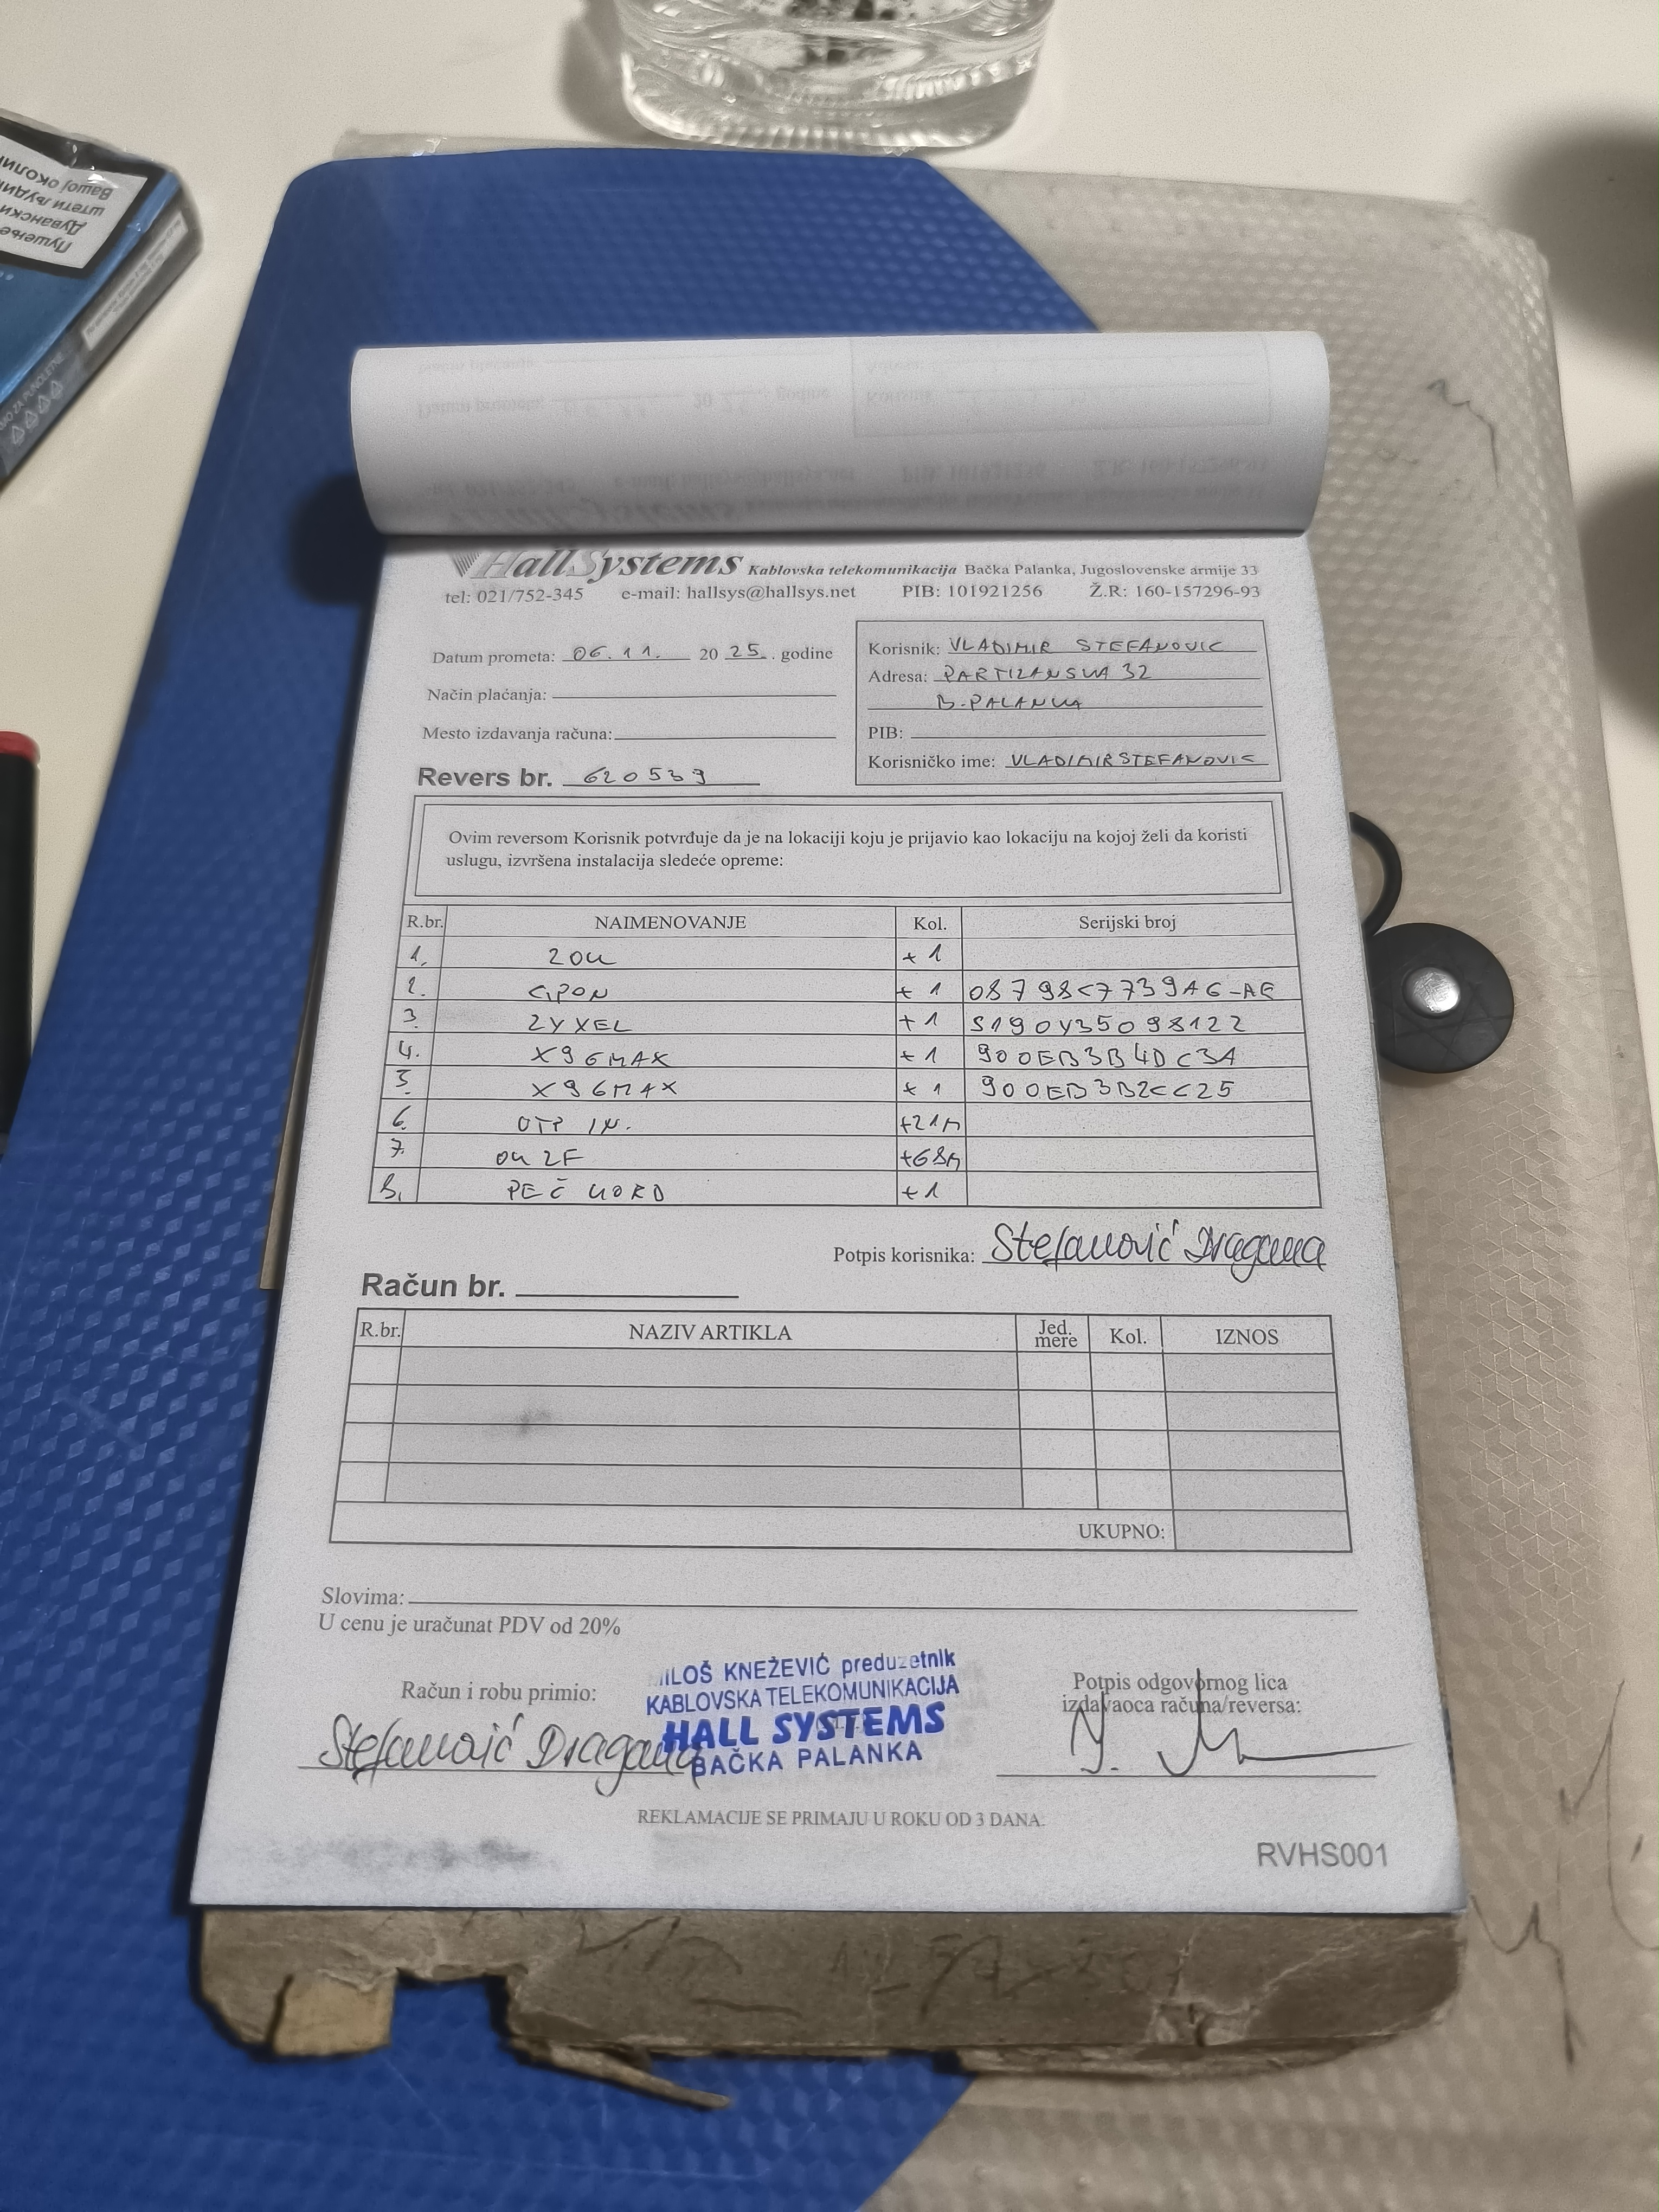 Пушење
Дувански
штети људи
Вашој околи
HallSystems Kablovska telekomunikacija Bačka Palanka, Jugoslovenske armije 33
tel: 021/752-345 e-mail: hallsys@hallsys.net PIB: 101921256 Ž.R: 160-157296-93
Datum prometa: 06.11. 2025. godine
Način plaćanja:
Mesto izdavanja računa:
Revers br. 620539
Korisnik: VLADIMIR STEFANOVIC
Adresa: PARTIZANSKA 32
B. PALANKA
PIB:
Korisničko ime: VLADIMIRSTEFANOVIC
Ovim reversom Korisnik potvrđuje da je na lokaciji koju je prijavio kao lokaciju na kojoj želi da koristi
uslugu, izvršena instalacija sledeće opreme:
R.br. NAIMENOVANJE Kol. Serijski broj
1. ZOK +1
2. GPON +1 08798C7739A6-AE
3. ZYXEL +1 S190Y35098122
4. X96MAX +1 900EB3B4DC3A
5. X96MAX +1 900EB3B2CC25
6. UTP IN. +21M
7. OK 2F +68M
8. +1
Potpis korisnika: Stefanović Dragana
Račun br.
R.br. NAZIV ARTIKLA Jed. mere Kol. IZNOS
UKUPNO:
Slovima:
U cenu je uračunat PDV od 20%
Račun i robu primio:
Stefanović Dragana
MILOŠ KNEŽEVIĆ preduzetnik
KABLOVSKA TELEKOMUNIKACIJA
HALL SYSTEMS
BAČKA PALANKA
Potpis odgovornog lica
izdavaoca računa/reversa:
REKLAMACIJE SE PRIMAJU U ROKU OD 3 DANA.
RVHS001